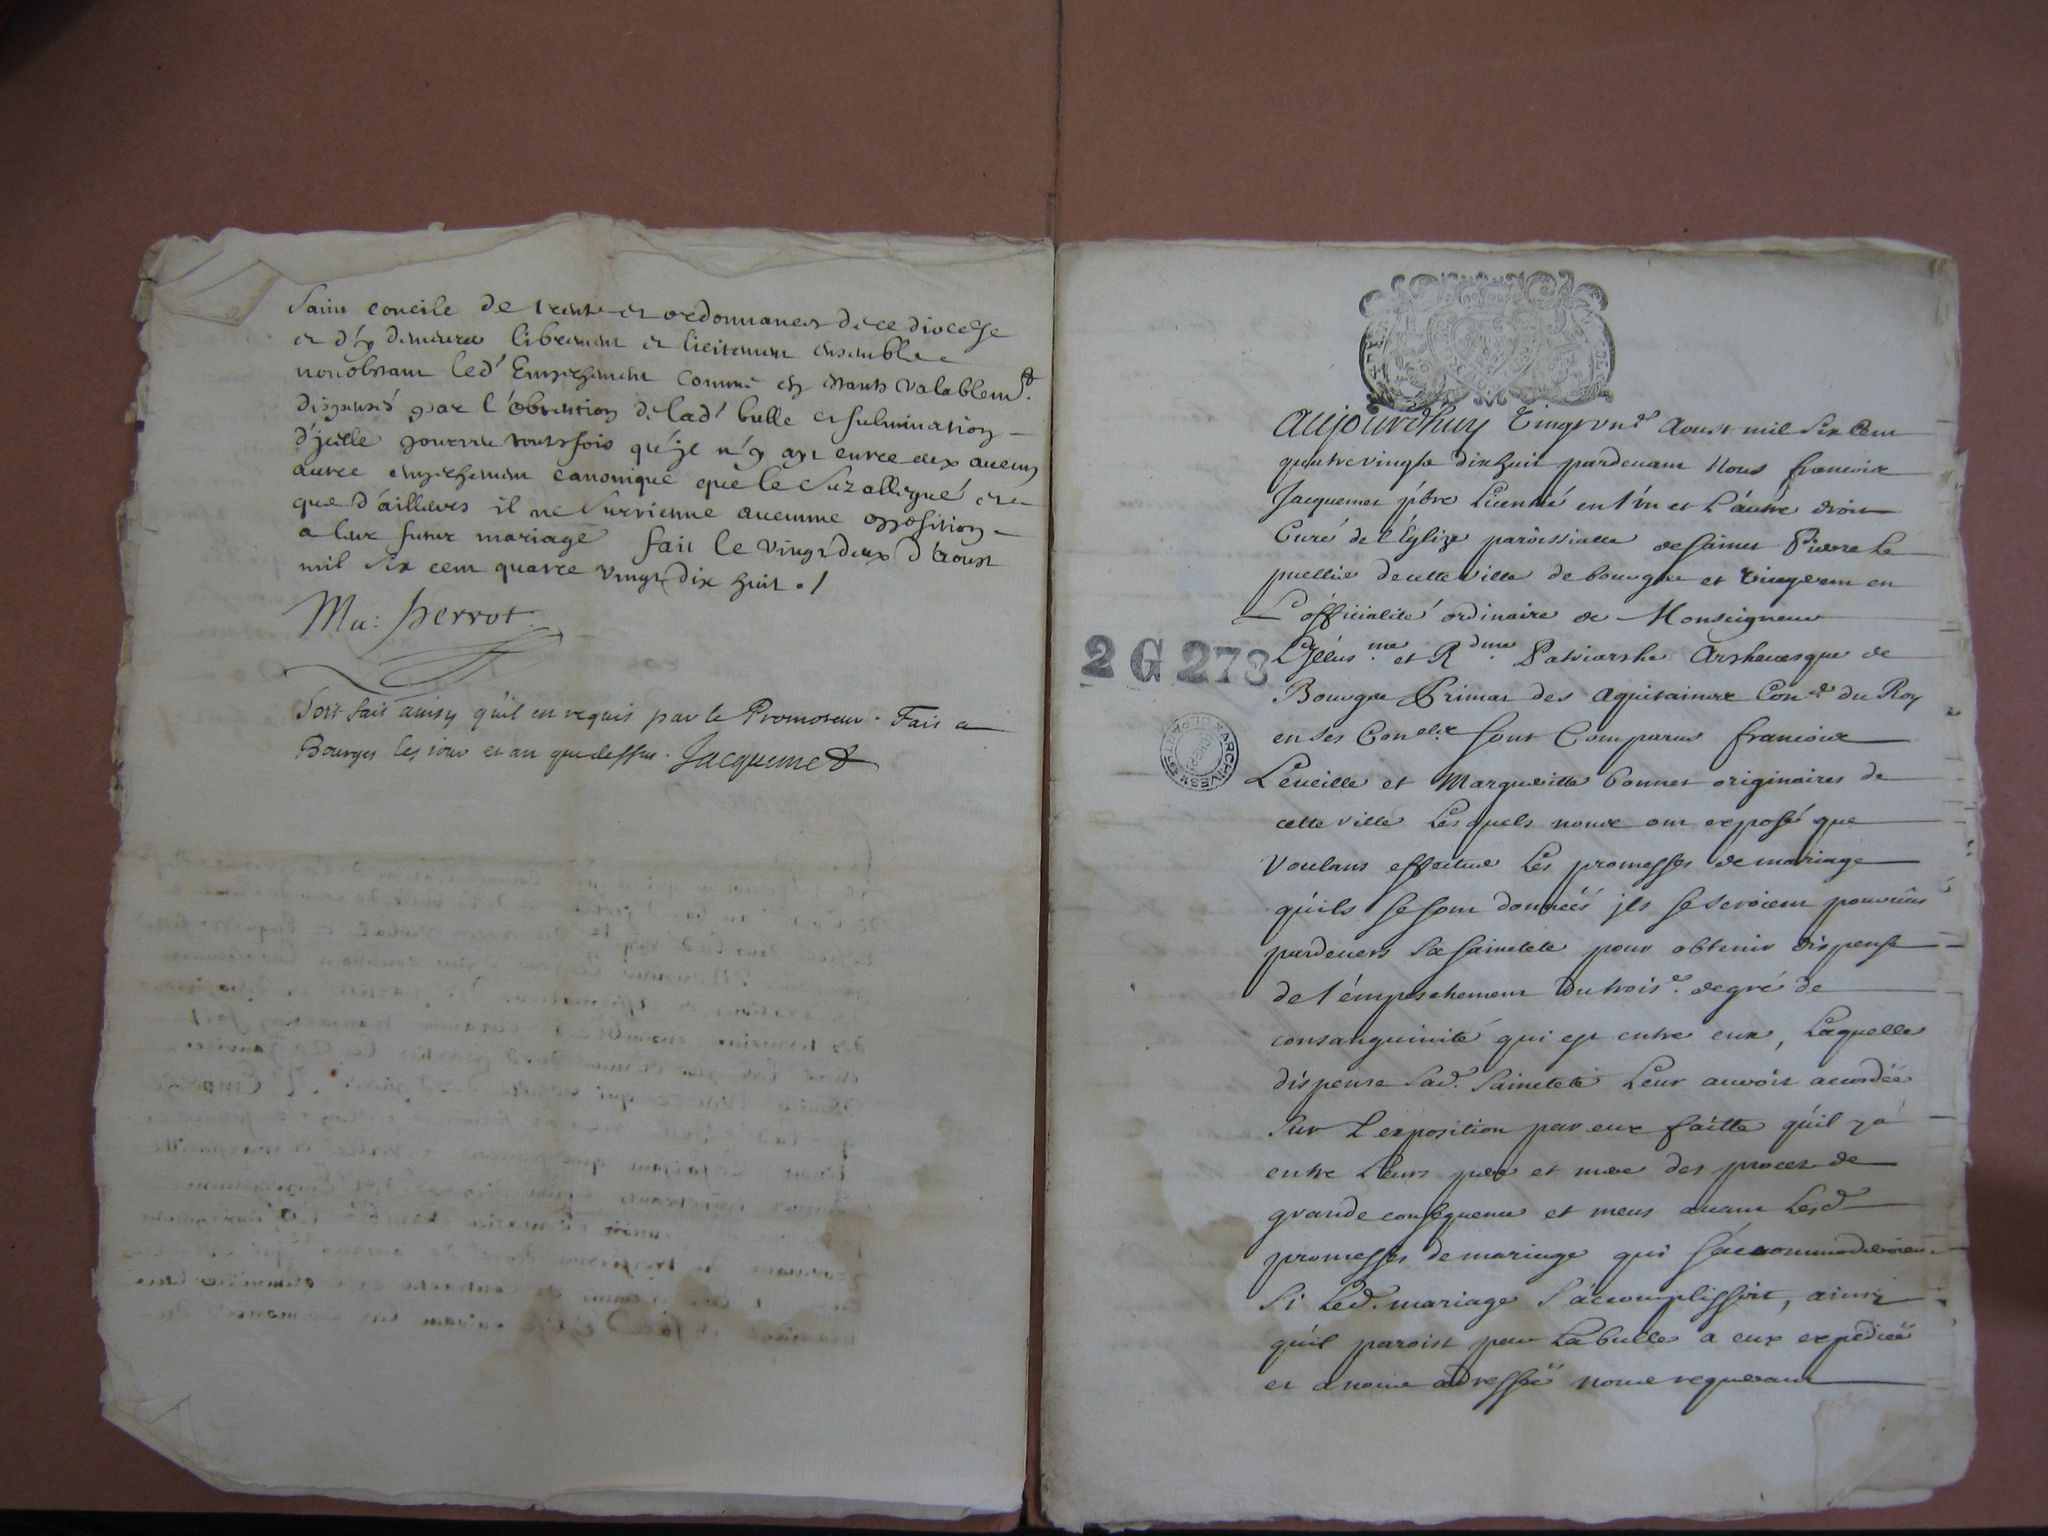 Saint concile de trente et ordonnances de ce diocese
et d'y demeurer librement et licitement ensemble
nonobstant led' Empeschement comme en estants valablemt.
dispensés par l'obtention de lad' bulle et fulmination
d'jcelle pourveu toutesfois qu'jl n'y ayt entre eux aucun
autre empeschement canonique que le Suzallegué et
que d'ailleurs il ne Survienne aucunne opposition
a leur futur mariage fait le vingt deux d'aoust
mil Six cent quatre vingt dix huit ./
Ma: perrot
Soit fait ainsy qu'il en requis par le Promoteur. Fait a
Bourges les jour et an que dessus. Jacquemet
2 G 273
aujourdhuy Vingt un.e Aoust mil Six Cent
quatrevingts dixhuit pardevant Nous francois
Jacquemet pbre Licentié en l'un et L'autre droit
Curé de l'Eglize paroissialle de Sainct Pierre le
puellier de cette ville de bourges et Vicegerent en
L'officialité ordinaire de Monseigneur
L'Illus.me et R.dme Patriarche Archevesque de
Bourges Primat des Aquitaines Con.er du Roy
en ses Con.els Sont Comparus francois
Leveille et Marguerite bonnet originaires de
cette ville Lesquels nous ont exposé que
voulans effectuer Les promesses de mariage
qu'ils se sont données jls se seroient pourvuus
pardevers Sa Saincteté pour obtenir dispense
de l'émpeschement du trois.e degré de
consanguinité qui est entre eux, Laquelle
dispense Sad. Saincteté Leur auroit accordée
Sur L'exposition par eux faitte qu'il y a
entre Leurs pere et mere des procez de
grande consequence et meus avant Lesd
promesses de mariage qui s'accommoderoient
Si Led. mariage S'accomplissoit, ainsy
qu'il paroist par La bulle a eux expediée
et a nous adressée nous requerant